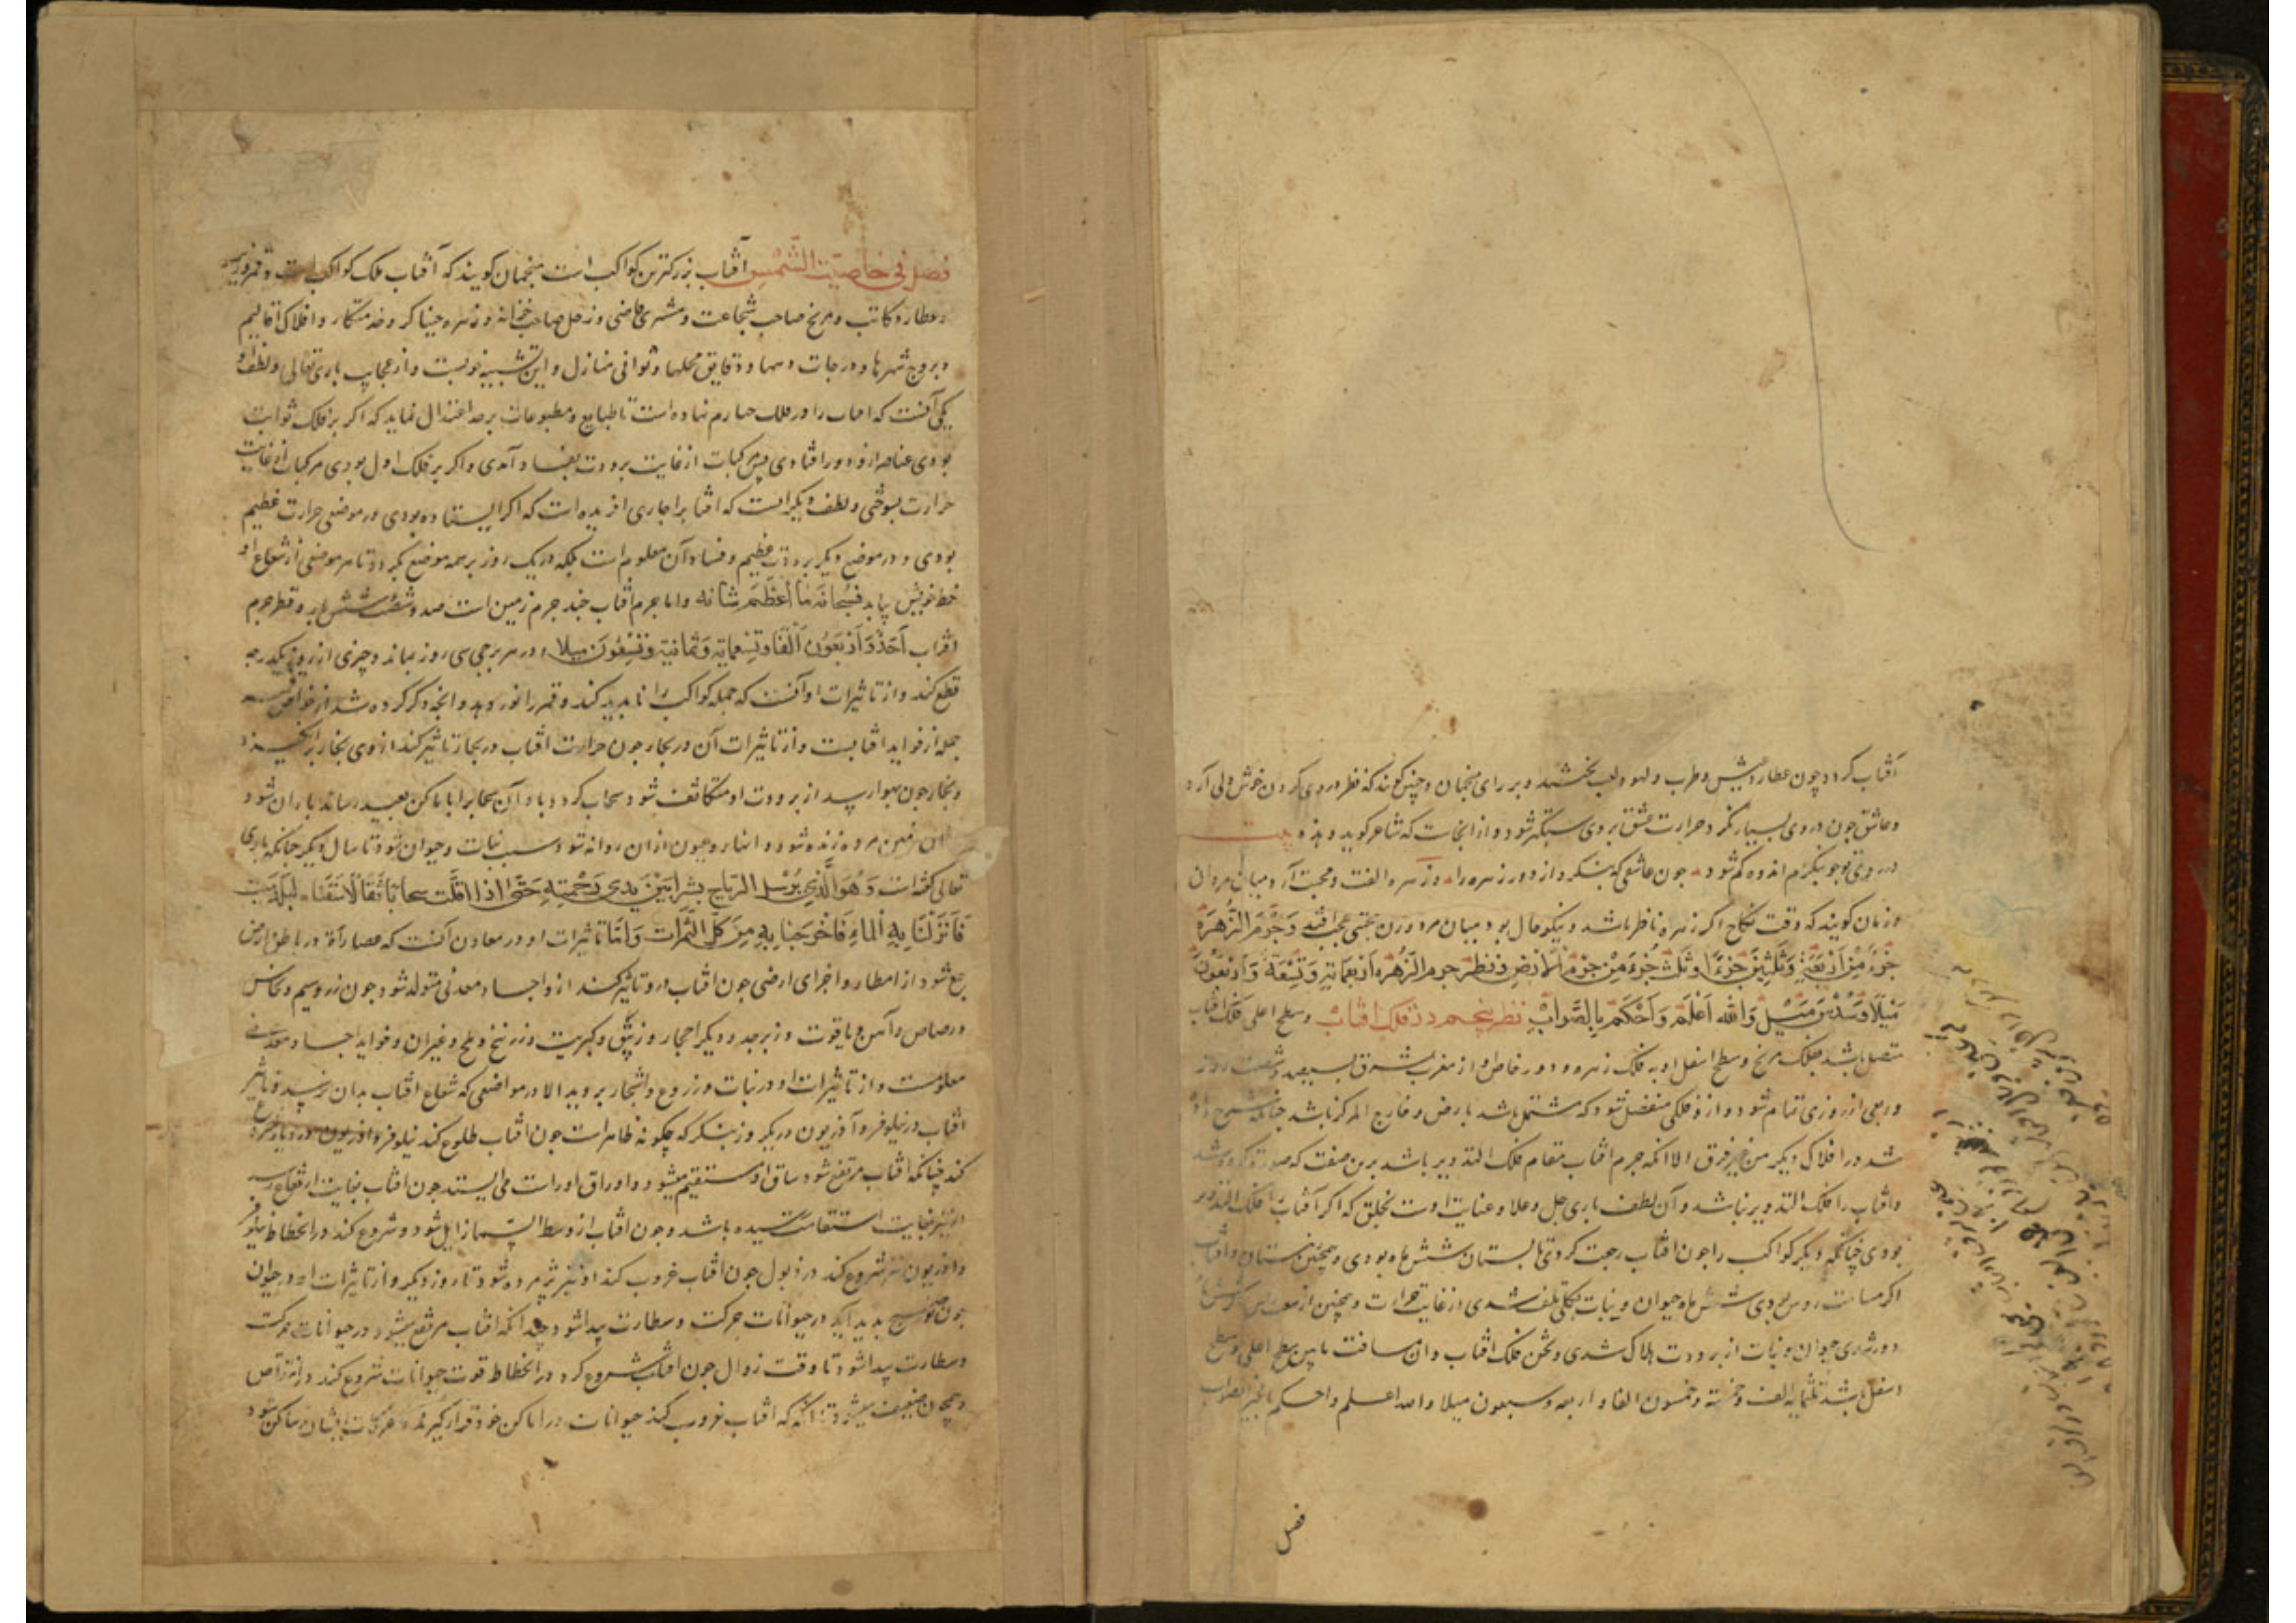 آفتاب کردد چون عطارد عیش و طرب و لهو و لعب بخشد و بر رای منجمان و چنین کویند که نظر در وی کردن خوش دلی آرد
و عاشق چون در وی بسیار نکرد حرارت عشق بر وی سبکتر شود و از انجاست که شاعر کوید و هذه بیت
در روی تو چو بنکرم اندوه کم شود چون عاشقی که بنکرد از دور زهره را و زهره الفت و محبت آرد میان مردان
و زنان کویند که وقت نکاح اکر زهره ناظر باشد و نیکو حال بود میان مرد و زن عجب افتد وَجِرْمِ الزُّهَرَة
جُزءٌ مِنْ اَرْبَعَةٍ وَثَلٰثِیْنَ جُزْءًا وَثُلْثُ جُزْءٍ مِنْ جِرْمِ الْاَرْضِ وقطر جرم الزُّهره اَرْبَعَمِائَةٍ وَتِسْعَة وَاَرْبَعُوْنَ
مَیْلًا وَسُدْسُ مَیْلٍ وَاللّٰه اَعْلَمُ وَاَحْکَمُ بِالصَّوَابْ نظر پنجم در فلک آفتاب و سطح اعلی فلک افتاب
متصل باشد بفلک مریخ و سطح اسفل او به فلک زهره و دور خاص او از مغرب بمشرق بسیصد و شصت و پنج روز
و ربعی از روزی تمام شود و از و فلکی منفصل شود که مشتمل باشد بارض و خارج المرکز باشد چنانکه شرح داده
شد در افلاک دیکر من غیر فرق الا انکه جرم افتاب مقام فلک التدویر باشد برین صفت که صورت کرده شد
و افتاب را فلک التدویر نباشد و آن لطف باری جل و علا و عنایت اوست بخلق که اکر آفتاب را فلک التدویر
بودی چنانکه دیکر کواکب را چون افتاب رجعت کردی تابستان شش ماه بودی و همچنین زمستان و افتاب
اکر مسامت روس بودی شش ماه حیوان و نبات بکلی تلف شدی از غایت حرارت و همچنین از
دور شدی حیوان و نبات از برودت هلاک شدی و ثخن فلک افتاب و ان مسافت مابین سطح اعلی و سطح
اسفل باشد ثلثمایة الف و خمسة و خمسون الفا و اربعه و سبعون میلا و الله اعلم و احکم بالصواب
فصل
فصل فی خاصیّت الشّمس آفتاب بزرکترین کواکب است منجمان کویند که آفتاب ملک کواکب است و قمر وزیر
و عطارد کاتب و مریخ صاحب شجاعت و مشتری قاضی و زحل صاحب خزانه و زهره خدمتکار و افلاک اقالیم
و بروج شهرها و درجات دیهها و دقایق محلها و ثوانی منازل و این تشبیه خوبست و از عجایب باری تعالی و لطف او
یکی آنست که افتاب را در فلک چهارم نهاده است تا طبایع و مطبوعات بر حد اعتدال نماید که اکر بر فلک ثوابت
بودی عناصر از و دور افتادی پس مرکبات از غایت برودت بفساد آمدی و اکر بر فلک اول بودی مرکبات از غایت
حرارت بسوختی و لطف دیکر انست که افتاب را جاری افریده است که اکر ایستاده بودی در موضعی حرارت عظیم
بودی و در موضع دیکر برودت عظیم و فساد آن معلوم است بلکه در یک روز بر همه موضع بکردد تا هر موضعی از شعاع او
حظ خویش یابد فَسُبْحَانَهُ مَا اَعْظَمَ شَانَه و اما جرم افتاب چند جرم زمین است صد و شصت و شش بار و قطر جرم
افتاب اَحَدٌ وَاَرْبَعُوْن اَلْفًا وتِسْعمایة وَثَمانیة وَتِسْعُوْنَ میلا و در هر برجی سی روز بماند و چیزی از روز یکدرجه
قطع کند و از تاثیرات او آنست که جمله کواکب را ناپدید کند و قمر را نور دهد و انچه ذکر کرده شد از خواص
جمله از فواید افتابست و از تاثیرات آن در بحار چون حرارت افتاب در بحار تاثیر کند از وی بخار برانکیزد
و بخار چون بهوا رسد از برودت او متکاثف شود سحاب کردد و باد آن سحاب را باماکن بعید رساند باران شود
زمین مرده زنده شود و انهار و عیون ازان روانه شود و سبب نبات و حیوان شود تا سال دیکر چنانکه باری
تعالی کفته است وَهُوَ الَّذِی یُرْسِلُ الرّیاحَ بُشْرًا بَیْنَ یَدَی رَحْمَتِهِ حَتّٰی اذا اَقَلَّت سحابًا ثِقَالًا سُقْنَاه لِبَلَدٍ مَیّت
فَاَنْزَلْنَا بِهِ الْمَاءَ فَاَخْرَجْنَا بِهِ مِنْ کُلِّ الثَّمَرَات وَاَمَّا تاثیرات او در معادن آنست که عصارات در باطن ارض
جمع شود از امطار و اجزای ارضی چون افتاب در و تاثیر کند از و اجساد معدنی متولد شود چون زر و سیم و نحاس
و رصاص و آهن و یاقوت و زبرجد و دیکر احجار و زیبق و کبریت و زرنیخ و ملح و غیران و فواید اجساد معدنی
معلومست و از تاثیرات او در نبات و زروع و اشجار بروید الا در مواضعی که شعاع افتاب بدان نرسد و تاثیر
افتاب در نیلوفر و آذریون دیکر و بنکر که چکونه ظاهر است چون افتاب طلوع کند نیلوفر و اذریون
کند چنانکه افتاب مرتفع شود ساق او مستقیم میشود و اوراق او راست می ایستد چون افتاب بغایت ارتفاع رسد
او نیز بغایت استقامت رسیده باشد و چون افتاب از وسط السّما زایل شود و شروع کند در انحطاط نیلوفر
و اذریون نیز شروع کند در ذبول چون افتاب غروب کند او نیز پژمرده شود تا روز دیکر و از تاثیرات او در حیوان
چون صبح پدید آید در حیوانات حرکت و سطارت پیدا شود و چندانکه افتاب مرتفع میشود در حیوانات حرکت
و سطارت پیدا شود تا وقت زوال چون افتاب شروع کرد در انحطاط قوت حیوانات شروع کند در تناقص
و همچنان ضعیف میشود تا انکه که افتاب غروب کند حیوانات در اماکن خود قرار کیرند و حرکات ایشان ساکن شود